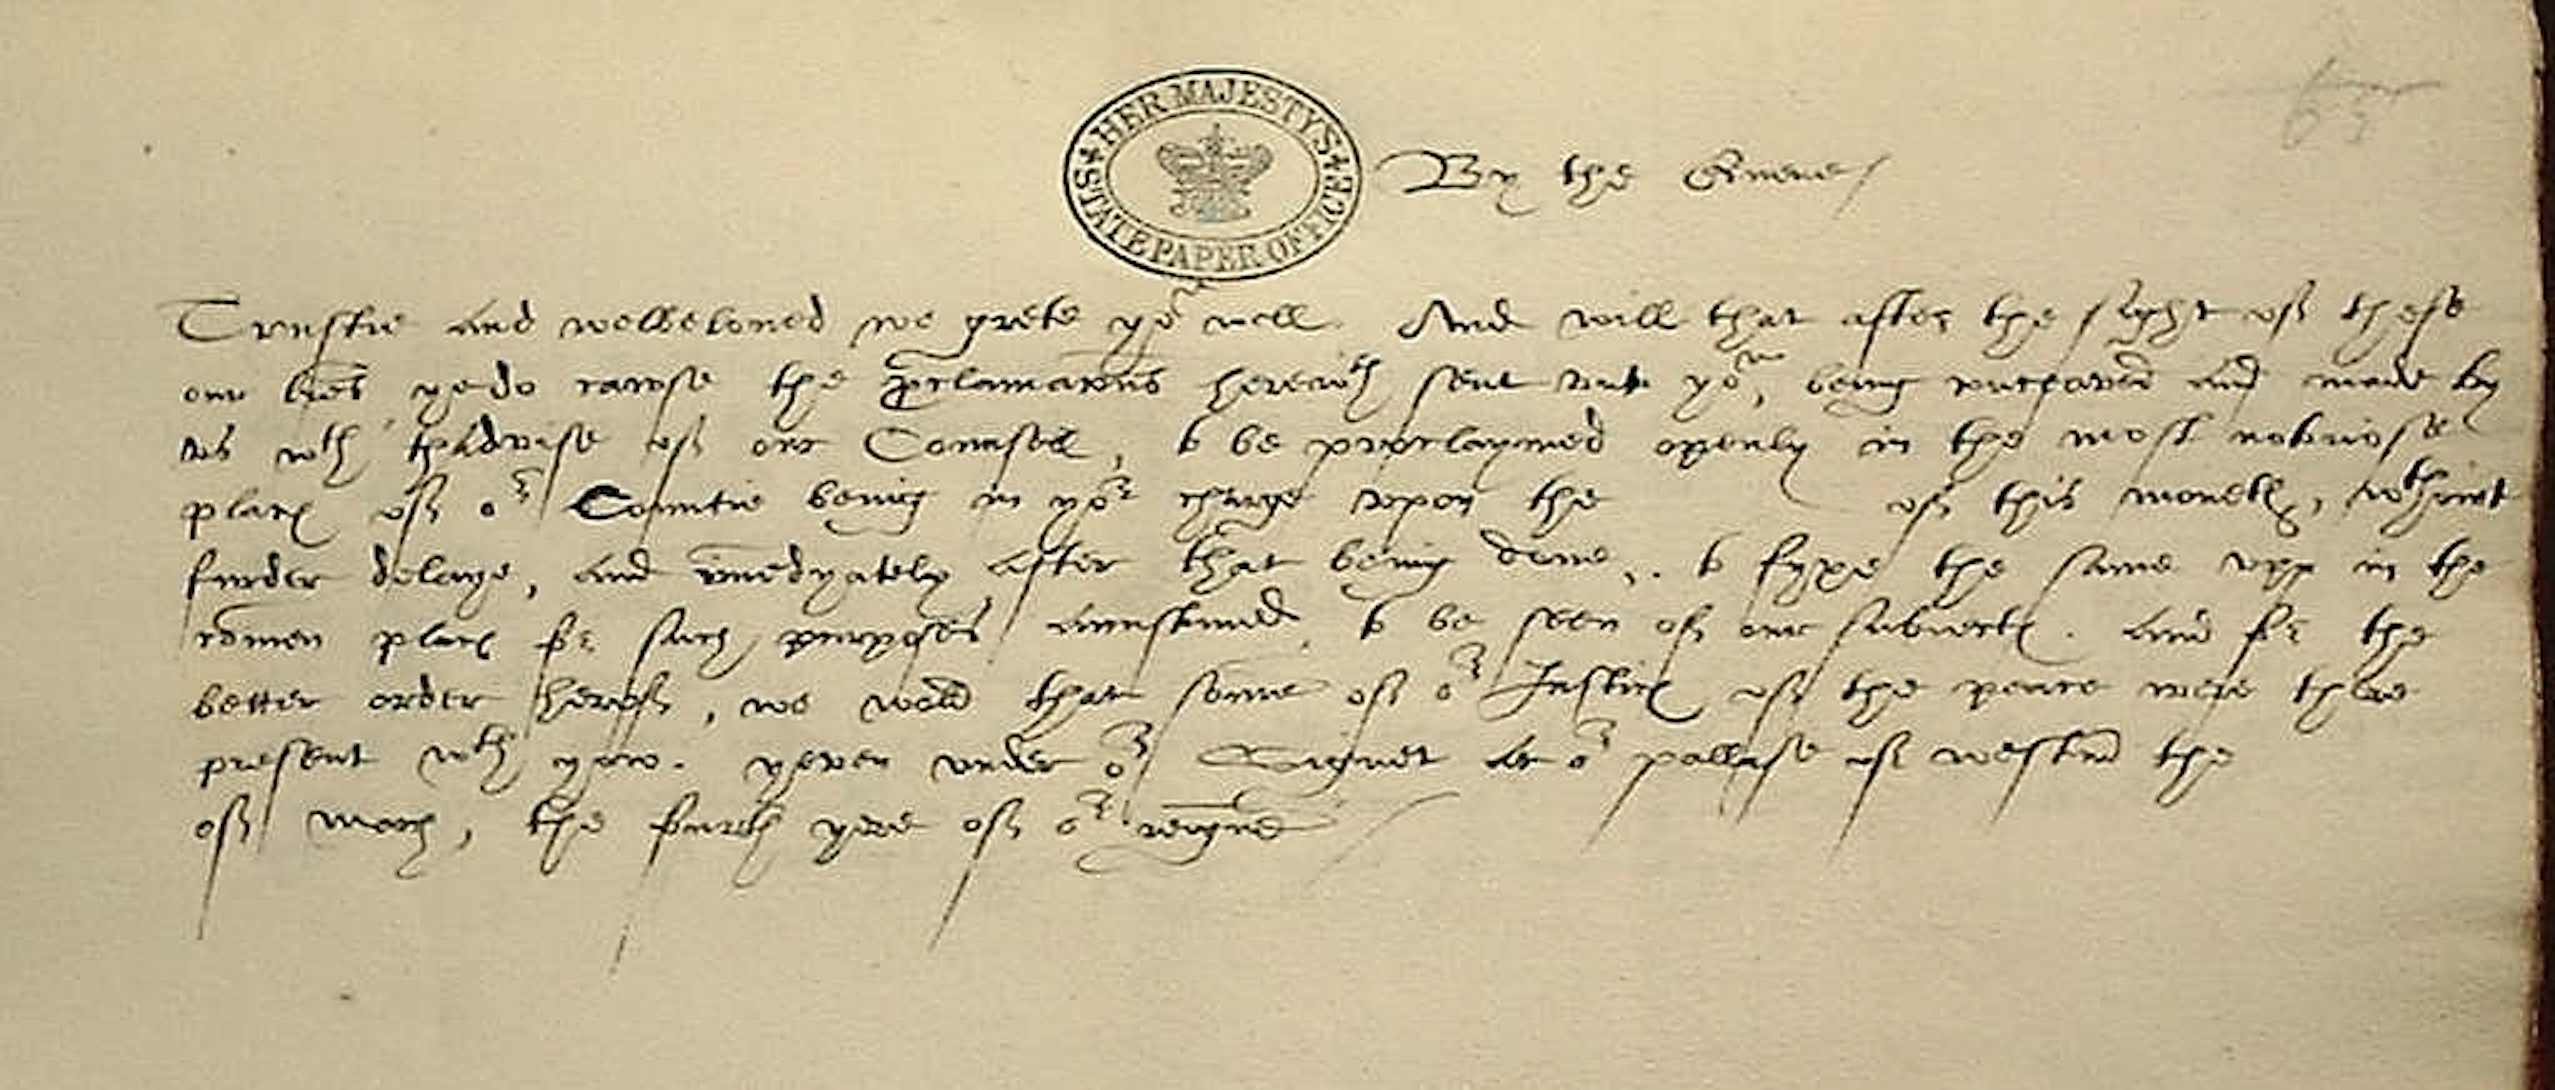 65
HER MAJESTYS STATE PAPER OFFICE
By the Quene
Trustie and welbeloued we grete yow well. And will that after the sight of these
our lres ye do cawse the proclamacons herewth sent vnto yow, being prepared and made by
vs wth thadvise of our Counsell, to be proclaymed openly in the most notoriose
place of or Countie being in yor charge vpon the of this moneth, wthout
furder delaye, and imedyately after that being done, to fyxe the same vpp in the
comen place for such purposes accustumed, to be seen of our subiectes. And for the
better order herof, we wold that some of or Justices of the peace were there
present wth yow. yeven vnder or Signet at or pallase of westmr the
of march, the fourth yere of or reigne